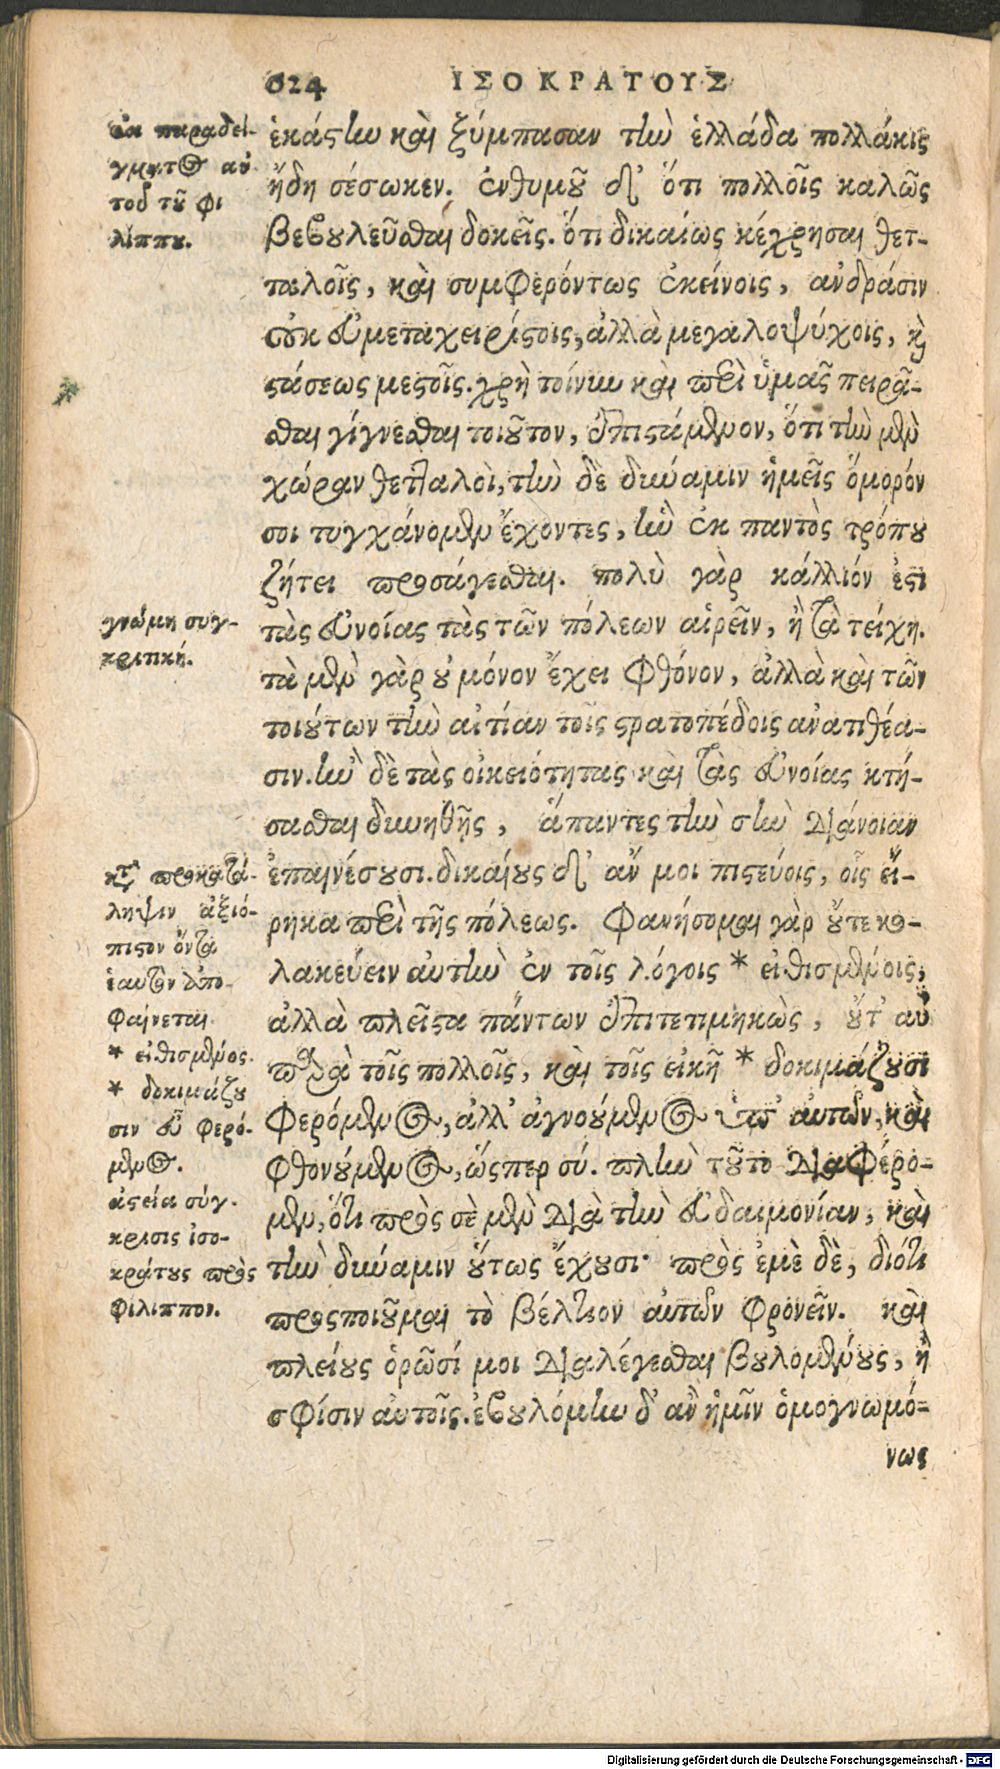 624 ΙΣΟΚΡΑΤΟΥΣ
ἐκ παραδεί-
γματος αὐ-
τοῦ τοῦ φι
λίππου.
ἑκάστην καὶ ξύμπασαν τὴν ἑλλάδα πολλάκις
ἤδη σέσωκεν. ἐνθυμοῦ δ' ὅτι πολλοῖς καλῶς
βεβουλεῦσθαι δοκεῖς. ὅτι δικαίως κέχρησαι θετ-
ταλοῖς, καὶ συμφερόντως ἐκείνοις, ἀνδράσιν
οὐκ εὐμεταχειρίστοις, ἀλλὰ μεγαλοψύχοις, καὶ
στάσεως μεστοῖς. χρὴ τοίνυν καὶ περὶ ὑμᾶς πειρᾶ-
σθαι γίγνεσθαι τοιοῦτον, ἐπιστάμενον, ὅτι τὴν μὲν
χώραν θετταλοὶ, τὴν δὲ δύναμιν ἡμεῖς ὅμορόν
σοι τυγχάνομεν ἔχοντες, ἣν ἐκ παντὸς τρόπου
ζήτει προσάγεσθαι. πολὺ γὰρ κάλλιόν ἐστι
γνώμη συγ-
κριτική.
τὰς εὐνοίας τὰς τῶν πόλεων αἱρεῖν, ἢ τὰ τείχη.
τὰ μὲν γὰρ οὐ μόνον ἔχει φθόνον, ἀλλὰ καὶ τῶν
τοιούτων τὴν αἰτίαν τοῖς στρατοπέδοις ἀνατιθέα-
σιν. ἢν δὲ τὰς οἰκειότητας καὶ τὰς εὐνοίας κτή-
σασθαι δυνηθῇς, ἅπαντες τὴν σὴν διάνοιαν
κατὰ προκατά-
ληψιν ἀξιό-
πιστον ὄντα
ἑαυτὸν ἀπο-
φαίνεται.
* εἰθισμένος.
* δοκιμάζου
σιν εὖ φερό-
μενος.
ἀστεία σύγ-
κρισις ἰσο-
κράτους πρὸς
φίλιππον.
ἐπαινέσουσι. δικαίως δ' ἄν μοι πιστεύοις, οἷς εἴ-
ρηκα περὶ τῆς πόλεως. φανήσομαι γὰρ οὔτε κο-
λακεύειν αὐτὴν ἐν τοῖς λόγοις * εἰθισμένοις,
ἀλλὰ πλεῖστα πάντων ἐπιτετιμηκὼς, οὔτ' αὖ
παρὰ τοῖς πολλοῖς, καὶ τοῖς εἰκῆ * δοκιμάζουσι
φερόμενος, ἀλλ' ἀγνοούμενος ὑπ' αὐτῶν, καὶ
φθονούμενος, ὥσπερ σύ. πλὴν τοῦτο διαφέρο-
μεν, ὅτι πρὸς σὲ μὲν διὰ τὴν εὐδαιμονίαν, καὶ
τὴν δύναμιν οὕτως ἔχουσι· πρὸς ἐμὲ δὲ, διότι
προσποιοῦμαι τὸ βέλτιον αὐτῶν φρονεῖν. καὶ
πλείους ὁρῶσί μοι διαλέγεσθαι βουλομένους, ἢ
σφίσιν αὐτοῖς. ἐβουλόμην δ' ἂν ἡμῖν ὁμογνωμό-
νως
Digitalisierung gefördert durch die Deutsche Forschungsgemeinschaft - DFG